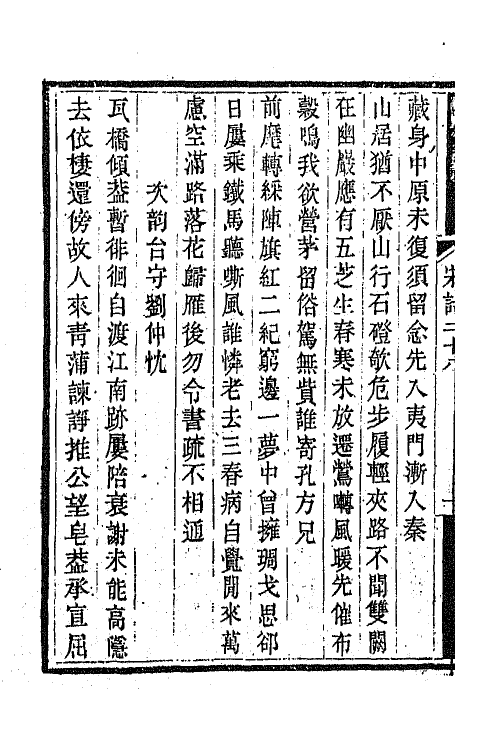 藏身中原未復須留念先入夷門漸入秦
山居猶不厭山行石磴欹危步履輕夾路不聞雙闕
在幽巖應有五芝生春寒未放遷鶯囀風暖先催布
穀鳴我欲營茅留俗駕無貲誰寄孔方兄
前麾轉綵陣旗紅二紀窮邊一夢中曾擁琱戈思郤
日屢乘鐵馬聽嘶風誰憐老去三春病自覺閒來萬
慮空滿路落花歸雁後勿令書疏不相通
次韵台守劉仲忱
瓦橋傾葢暫徘徊自渡江南跡屢陪衰謝未能高隱
去依棲還傍故人來青蒲諫諍推公望皂葢承宣屈